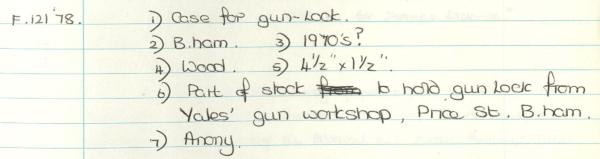 F.121'78. 1) Case for gun-lock.
2) B.ham. 3) 1970's?
4) Wood. 5) 4½" x 1½".
6) Part of stock to hold gun lock from
Yates' gun workshop, Price St. B.ham.
7) Anony.